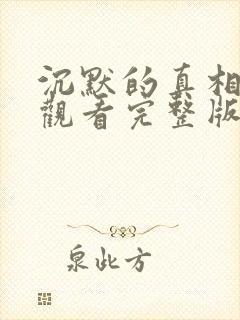 沉默的真相
觀看完整版
泉此方